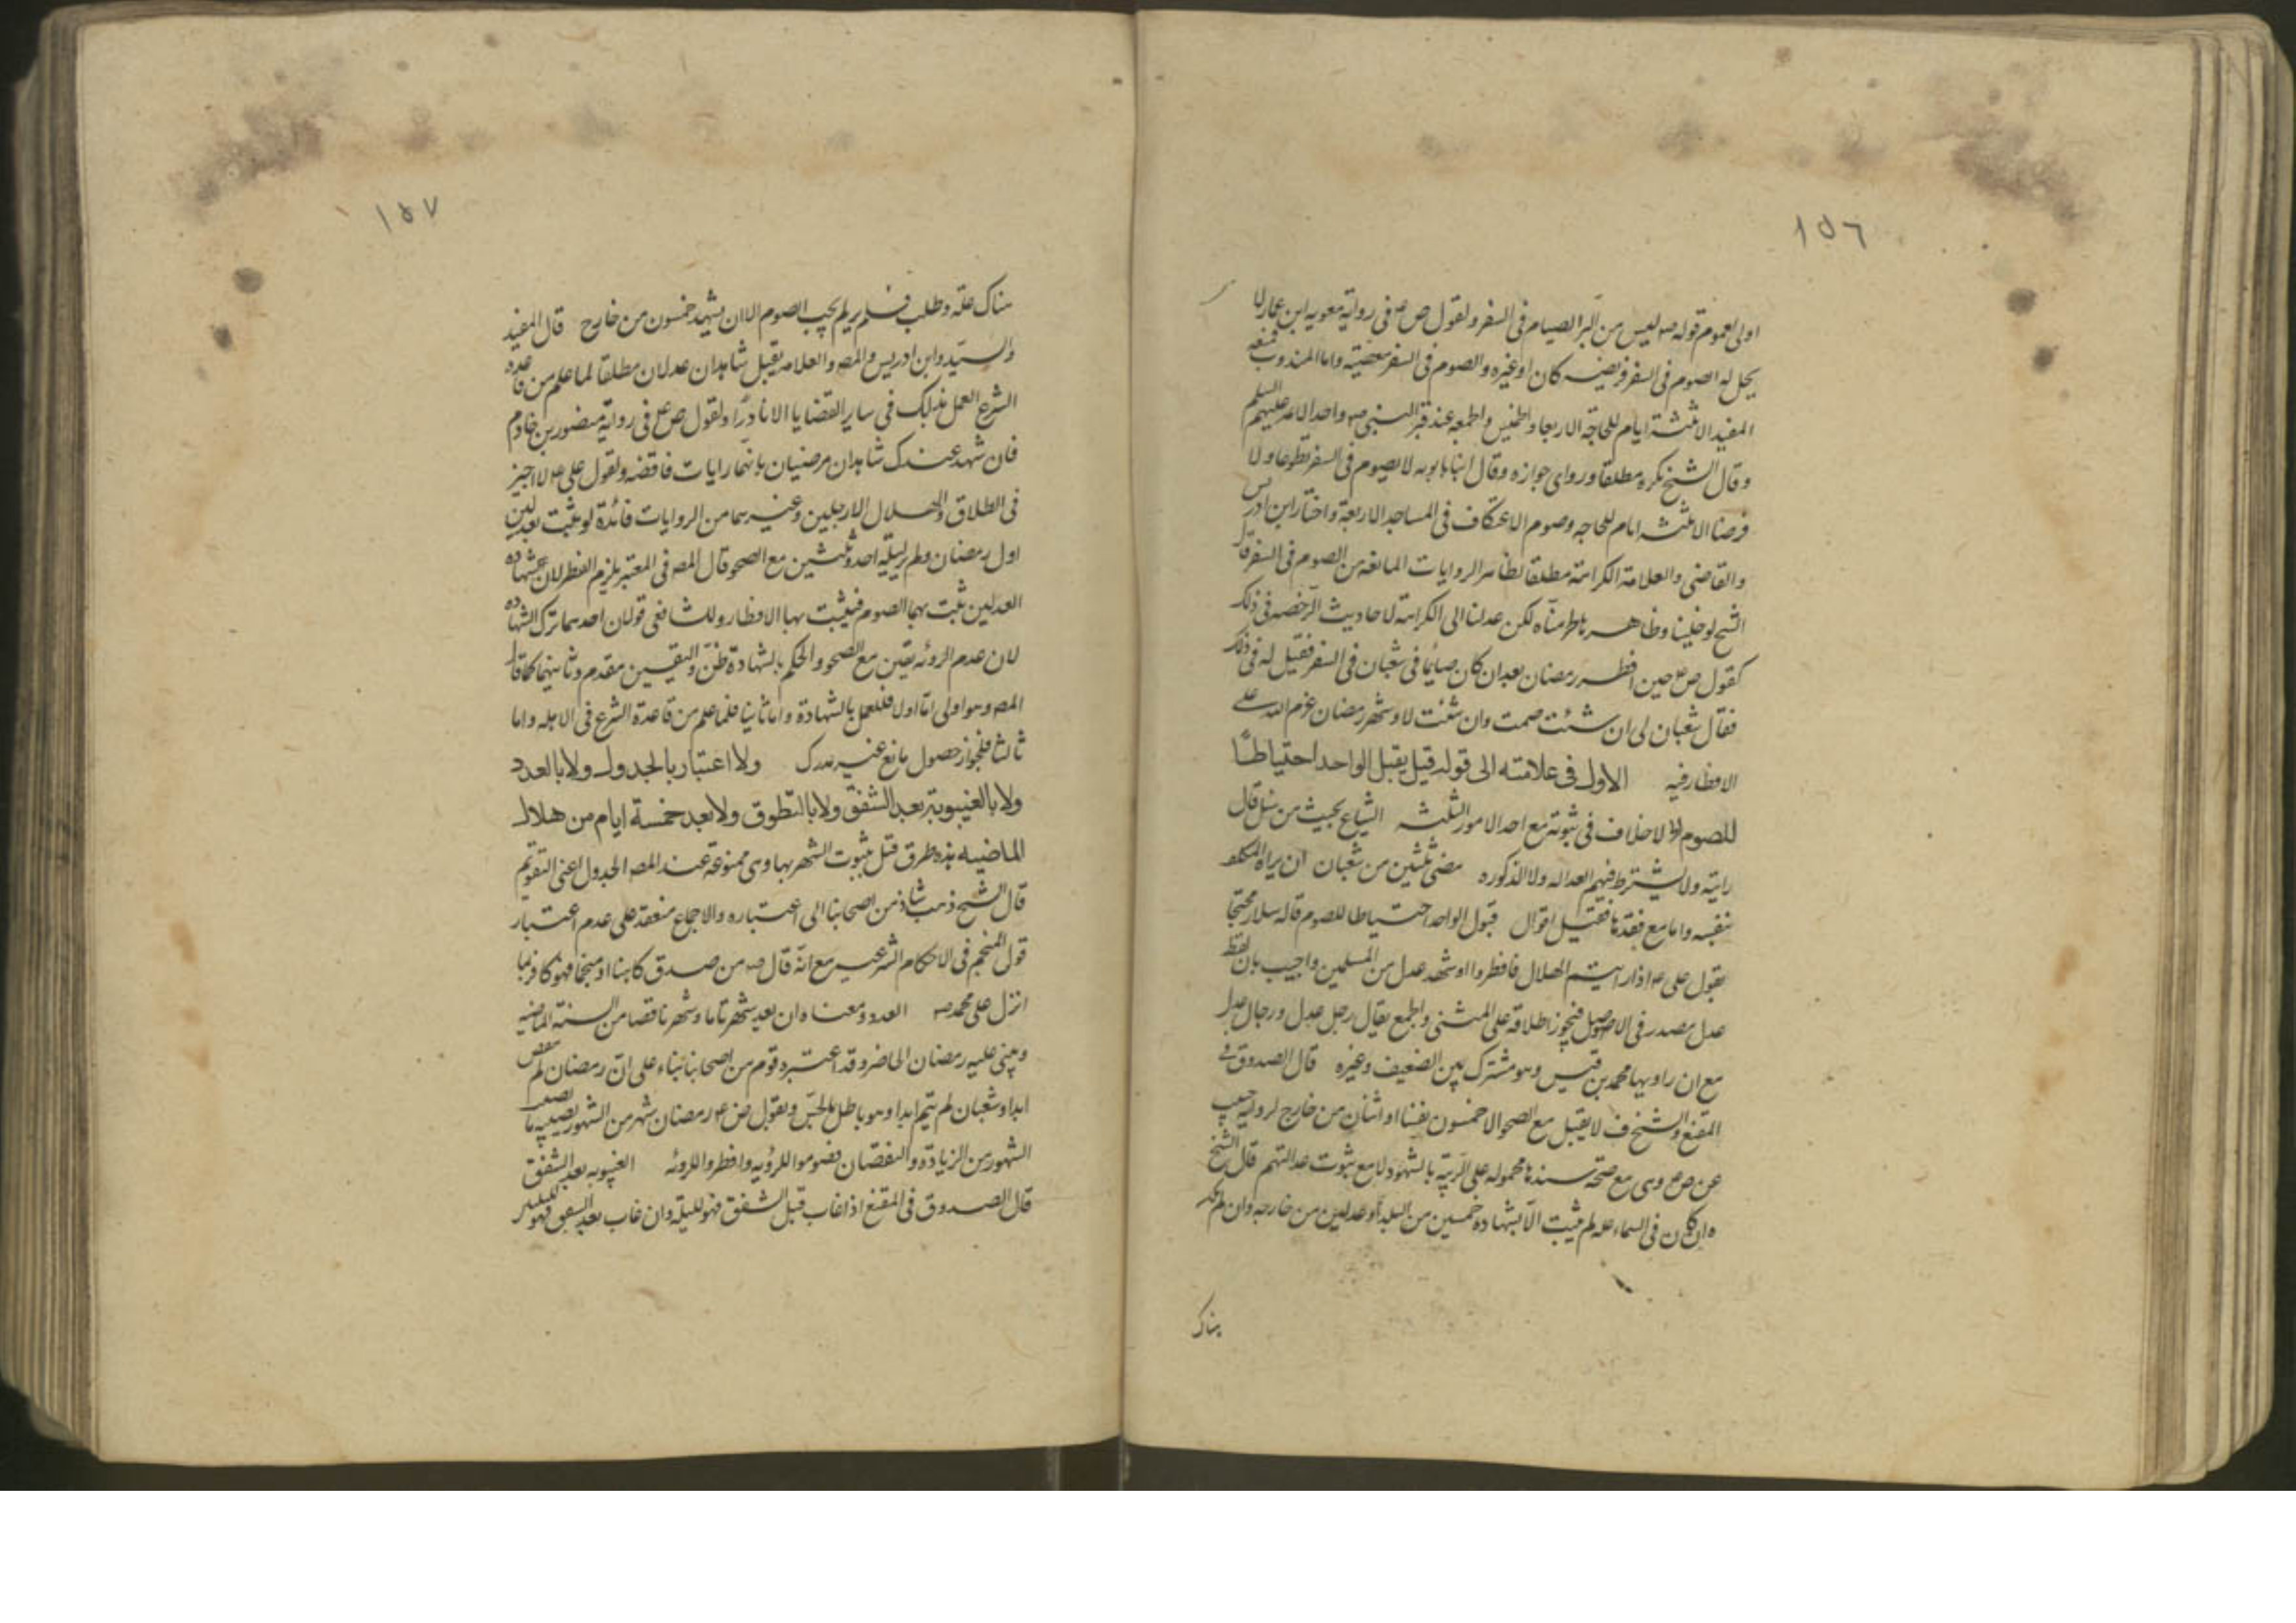 ١٥٦
اولى لعموم قوله صه ليس من البر الصيام فى السفر ولقول ص عه فى رواية معويه ابن عمار لا
يحل له الصوم فى السفر فريضه كان او غيره والصوم فى السفر معصية واما المندوب فمنعه
المفيد الا ثلثة ايام للحاجة الاربعا والخميس والجمعه عند قبر النبى صه واحد الائمه عليهم السلم
وقال الشيخ يكره مطلقا وروى جوازه وقال ابنا بابويه لا يصوم فى السفر تطوعا ولا
فرضا الا ثلثه ايام للحاجه وصوم الاعتكاف فى المساجد الاربعة واختار ابن ادريس
والقاضى والعلامة الكراهة مطلقا لظاهر الروايات المانعه من الصوم فى السفر قال
الشيخ لو خلينا وظاهرها لحرمناه لكن عدلنا الى الكراهة لاحاديث الرخصه فى ذلك
كقول ص ع حين افطر رمضان بعد ان كان صايما فى شعبان فى السفر فقيل له فى ذلك
فقال شعبان لى ان شئت صمت وان شئت لا وشهر رمضان عزم الله على
الافطار فيه الاول فى علامته الى قوله قيل يقبل الواحد احتياطا
للصوم لا خلاف فى ثبوته مع احد الامور الثلثه الشياع بحيث من سئل قال
رايته ولا يشترط فيهم العداله ولا الذكوره مضى ثلثين من شعبان ان يراه المكلف
بنفسه واما مع فقدها فقيل اقوال قبول الواحد احتياطا للصوم قاله سلار محتجا
بقول على عه اذا رايتم الهلال فافطروا او شهد عدل من المسلمين واجيب بان لفظ
عدل مصدر فى الاصل فيجوز اطلاقه على المثنى والجمع يقال رجل عدل ورجال عدل
مع ان راويها محمد بن قيس وهو مشترك بين الضعيف وغيره قال الصدوق فى
المقنع والشيخ ف لا يقبل مع الصحو الا خمسون نفسا او اثنان من خارج لرواية حبيب
عن ص ع وهى مع صحة سندها محموله على الريبة بالشهود لا مع ثبوت عدالتهم قال الشيخ
وان كان فى السماء عله لم يثبت الا بشهادة خمسين من البلد او عدلين من خارجه وان لم يكن
هناك
١٥٧
هناك علة وطلب فلم ير لم يجب الصوم الا ان يشهد خمسون من خارج قال المفيد
والسيد وابن ادريس والمصه والعلامه يقبل شاهدان عدلان مطلقا لما علم من قاعده
الشرع العمل بذلك فى ساير القضايا الا نادرا ولقول ص ع فى رواية منصور بن حازم
فان شهد عندك شاهدان مرضيان بانهما رايات فاقضه ولقول على عه لا اجيز
فى الطلاق والهلال الا رجلين وغيرهما من الروايات فائدة لو ثبت بعدلين
اول رمضان ولم ير ليلة احد وثلثين مع الصحو قال المصه فى المعتبر يلزم الفطر لان شهاده
العدلين ثبت بهما الصوم فيثبت بهما الافطار وللشافعى قولان احدهما ترك الشهاده
لان عدم الرؤيه يقين مع الصحو والحكم بالشهادة ظن واليقين مقدم وثانيهما كما قال
المصه وهو اولى اما اولا فللعمل بالشهادة واما ثانيا فلما علم من قاعدة الشرع فى الاهله واما
ثالثا فلجواز حصول مانع غير مدرك ولا اعتبار بالجدول ولا بالعدد
ولا بالغيبوبة بعد الشفق ولا بالتطوق ولا بعد خمسة ايام من هلال
الماضيه هذه طرق قيل بثبوت الشهر بها وهى ممنوعة عند المصه الجدول اعنى التقويم
قال الشيخ ذهب شاذ من اصحابنا الى اعتباره والاجماع منعقد على عدم اعتبار
قول المنجم فى الاحكام الشرعيه مع انه قال صه من صدق كاهنا او منجما فهو كافر بما
انزل على محمد صه العدد ومعناه ان يعد شهر تاما وشهر ناقصا من السنة الماضيه
ويبنى عليه رمضان الحاضر وقد اعتبره قوم من اصحابنا بناء على ان رمضان لم ينقص
ابدا وشعبان لم يتم ابدا وهو باطل بالحس ولقول ص ع رمضان شهر من الشهور يصيبه ما يصيب
الشهور من الزيادة والنقصان فصوموا للرؤيه وافطروا للرؤيه الغيبوبه بعد الشفق
قال الصدوق فى المقنع اذا غاب قبل الشفق فهو لليلة وان غاب بعد الشفق فهو لليلتين